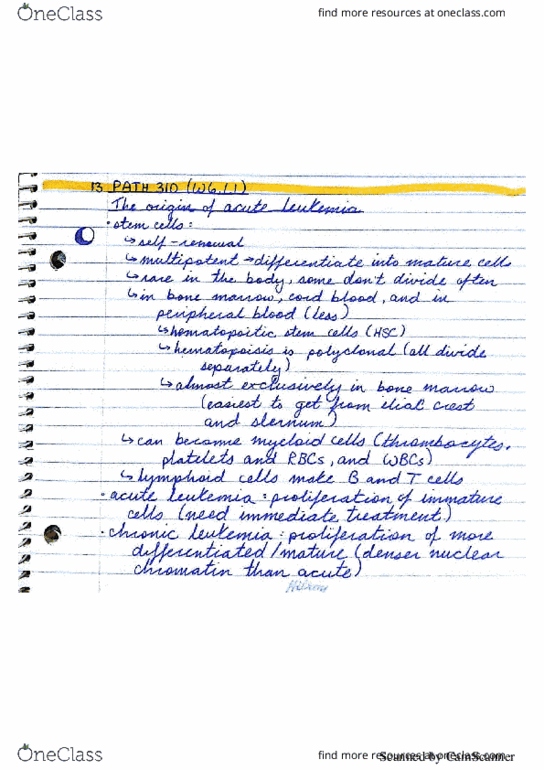 OneClass find more resources at oneclass.com
13 PATH 310 (W6, L1)
The origin of acute leukemia
• stem cells:
↳ self-renewal
↳ multipotent → differentiate into mature cells
↳ rare in the body, some don't divide often
↳ in bone marrow, cord blood, and in
peripheral blood (less)
↳ hematopoitic stem cells (HSC)
↳ hematopoisis is polyclonal (all divide
separately)
↳ almost exclusively in bone marrow
(easiest to get from ilial crest
and sternum)
↳ can become myeloid cells (thrombocytes,
platelets and RBCs, and WBCs)
↳ lymphoid cells make B and T cells
• acute leukemia: proliferation of immature
cells (need immediate treatment)
• chronic leukemia: proliferation of more
differentiated/mature (denser nuclear
chromatin than acute)
OneClass find more resources at oneclass.com
Scanned by CamScanner